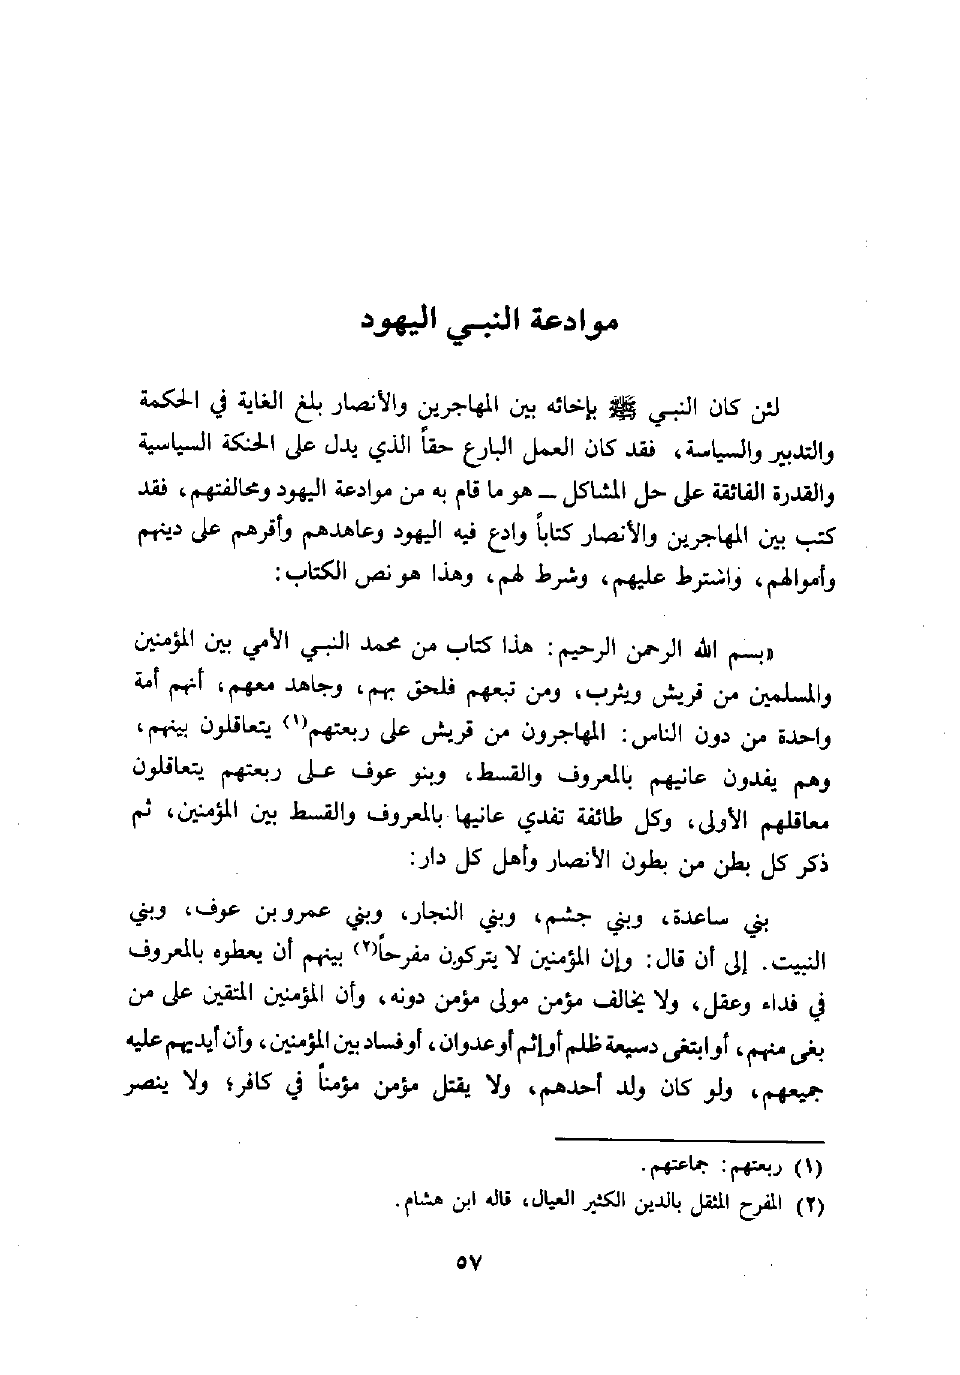 موادعة النبي اليهود
لئن كان النبي ﷺ بإخائه بين المهاجرين والأنصار بلغ الغاية في الحكمة
والتدبير والسياسة، فقد كان العمل البارع حقاً الذي يدل على الحنكة السياسية
والقدرة الفائقة على حل المشاكل ــ هو ما قام به من موادعة اليهود ومحالفتهم، فقد
كتب بين المهاجرين والأنصار كتاباً وادع فيه اليهود وعاهدهم وأقرهم على دينهم
وأموالهم، واشترط عليهم، وشرط لهم، وهذا هو نص الكتاب:
«بسم الله الرحمن الرحيم: هذا كتاب من محمد النبي الأمي بين المؤمنين
والمسلمين من قريش ويثرب، ومن تبعهم فلحق بهم، وجاهد معهم، أنهم أمة
واحدة من دون الناس: المهاجرون من قريش على ربعتهم(١) يتعاقلون بينهم،
وهم يفدون عانيهم بالمعروف والقسط، وبنو عوف على ربعتهم يتعاقلون
معاقلهم الأولى، وكل طائفة تفدي عانيها بالمعروف والقسط بين المؤمنين، ثم
ذكر كل بطن من بطون الأنصار وأهل كل دار:
بني ساعدة، وبني جشم، وبني النجار، وبني عمرو بن عوف، وبني
النبيت. إلى أن قال: وإن المؤمنين لا يتركون مفرحاً(٢) بينهم أن يعطوه بالمعروف
في فداء وعقل، ولا يخالف مؤمن مولى مؤمن دونه، وأن المؤمنين المتقين على من
بغى منهم، أو ابتغى دسيعة ظلم أو إثم أو عدوان، أو فساد بين المؤمنين، وأن أيديهم عليه
جميعهم، ولو كان ولد أحدهم، ولا يقتل مؤمن مؤمناً في كافر؛ ولا ينصر
(١) ربعتهم: جماعتهم.
(٢) المفرح المثقل بالدين الكثير العيال، قاله ابن هشام.
٥٧